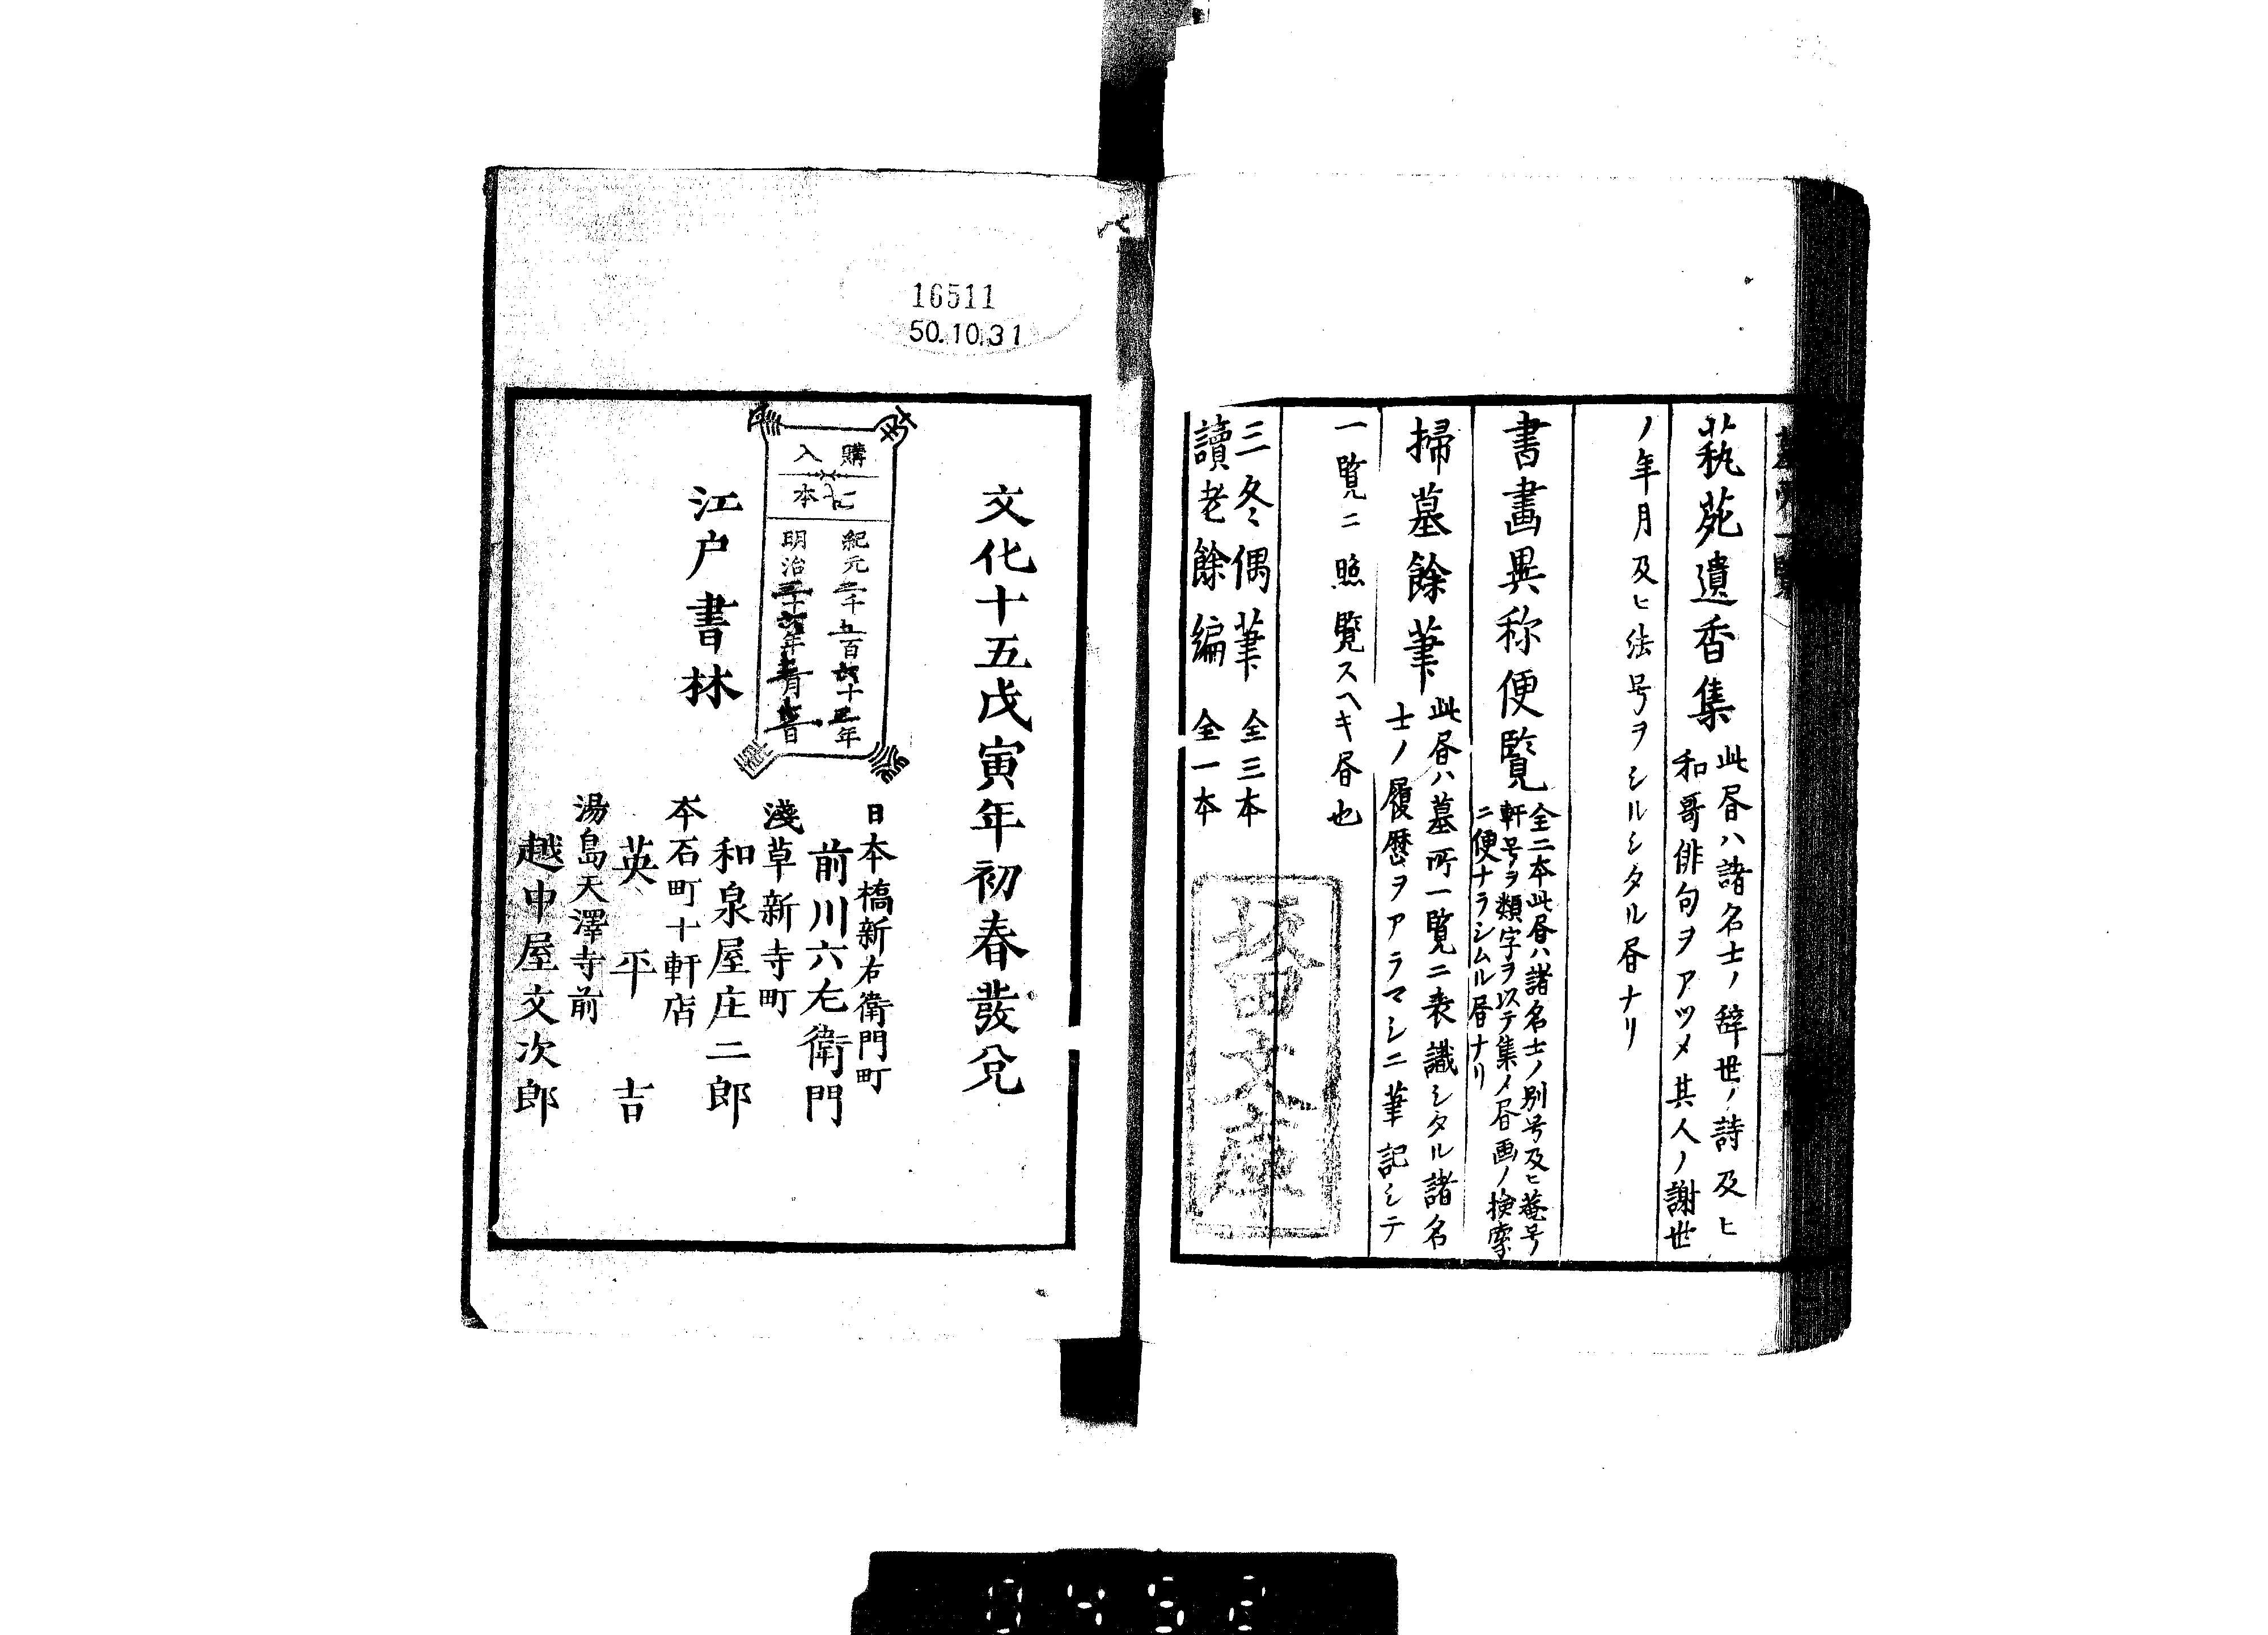 藝苑遺香集
此昏ハ諸名士ノ辞世ノ詩及ヒ
和哥俳句ヲアツメ其人ノ謝世
ノ年月及ヒ法号ヲシルシタル昏ナリ
書畫異称便覧
全二本此昏ハ諸名士ノ別号及ヒ菴号
軒号ヲ類字ヲ以テ集メ昏画ノ捜索
ニ便ナラシムル昏ナリ
掃墓餘筆
此昏ハ墓所一覧ニ表識シタル諸名
士ノ履歴ヲアラマシニ筆記シテ
一覧ニ照覧スヘキ昏也
三冬偶筆 全三本
讀老餘編 全一本
16511
50.10.31
文化十五戊寅年初春發兌
購入
本
紀元二千五百六十三年
明治三十六年
江戸書林
日本橋新右衛門町
前川六左衛門
淺草新寺町
和泉屋庄二郎
本石町十軒店
英平吉
湯島天澤寺前
越中屋文次郎